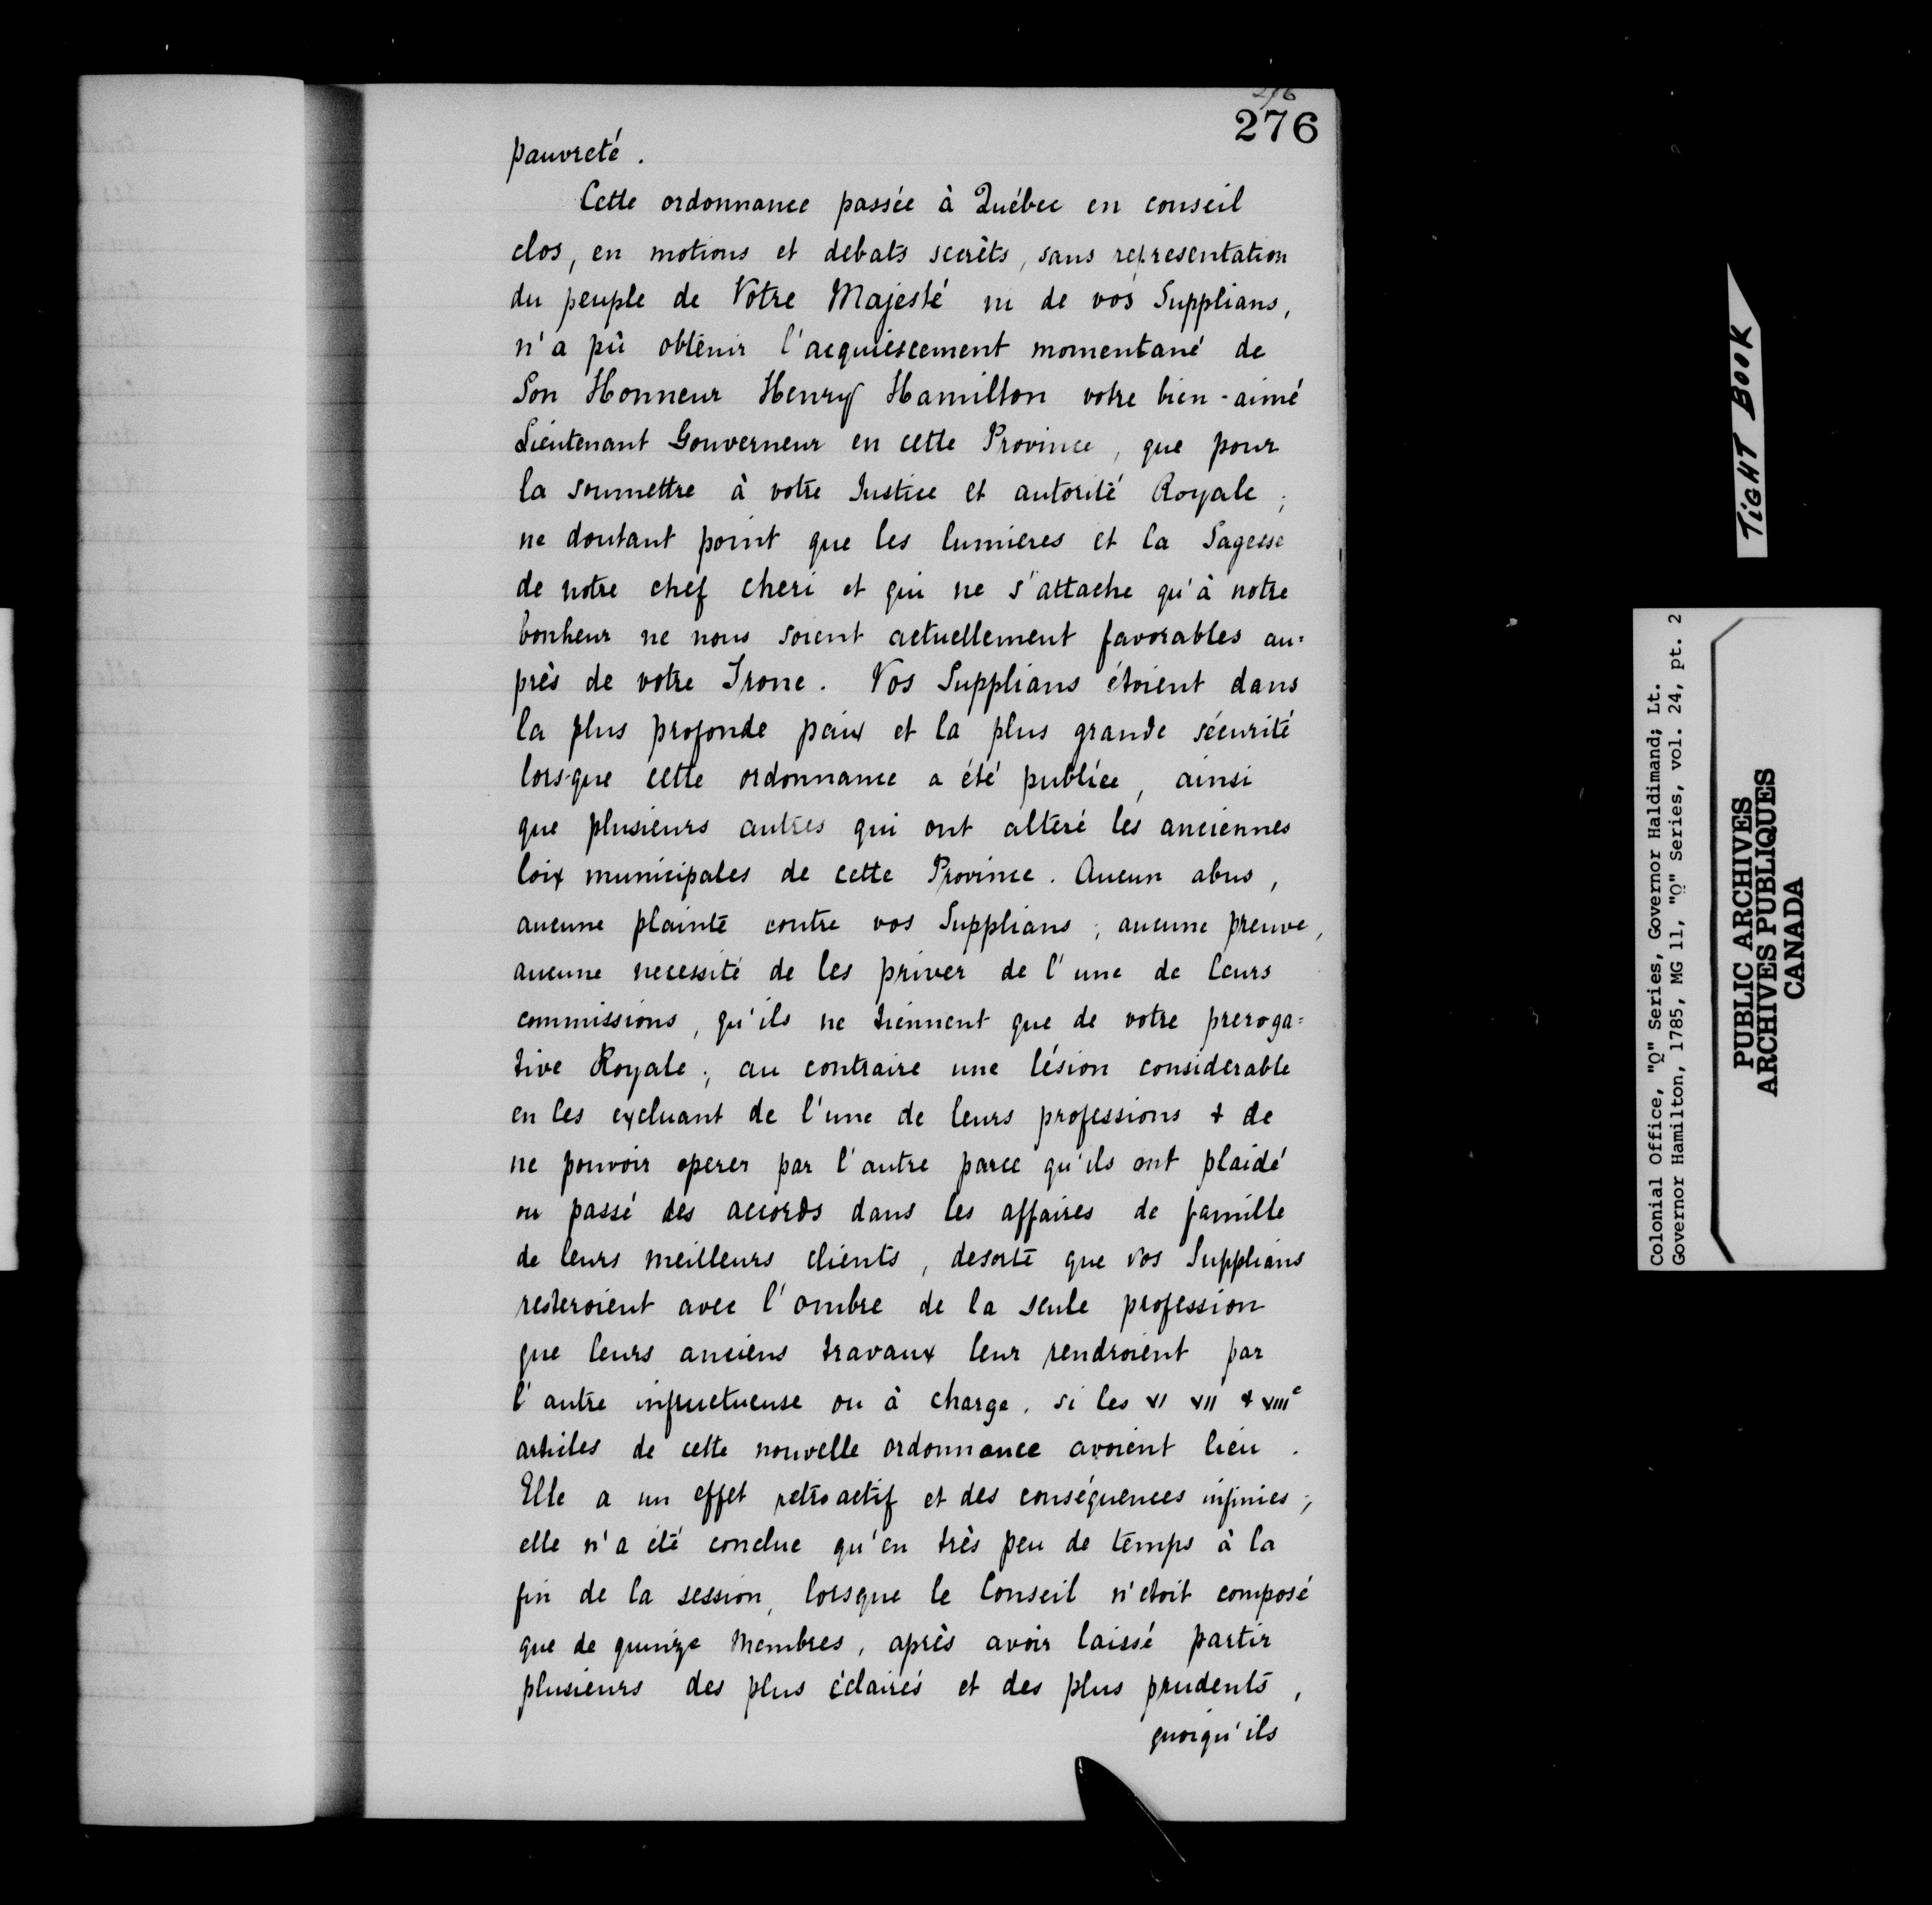 276
276
pauvreté.
Cette ordonnance passée à Québec en conseil
clos, en motions et debats secrèts, sans representation
du peuple de Votre Majesté ni de vos Supplians,
n'a pû obtenir l'acquiescement momentané de
Son Honneur Henry Hamilton votre bien-aimé
Lieutenant Gouverneur en cette Province, que pour
la soumettre à votre Justice et autorité Royale;
ne doutant point que les lumieres et la Sagesse
de notre chef cheri et qui ne s'attache qu'à notre
bonheur ne nous soient actuellement favorables au=
près de votre Trone. Vos Supplians étoient dans
la plus profonde paix et la plus grande sécurité
lors-que cette ordonnance a été publiée, ainsi
que plusieurs autres qui ont altéré les anciennes
loix municipales de cette Province. Aucun abus,
aucune plainte contre vos Supplians; aucune preuve,
aucune necessité de les priver de l'une de leurs
commissions, qu'ils ne tiennent que de votre preroga=
tive Royale; au contraire une lésion considerable
en les excluant de l'une de leurs professions & de
ne pouvoir operer par l'autre parce qu'ils ont plaidé
ou passé des accords dans les affaires de famille
de leurs meilleurs clients, desorte que vos Supplians
resteroient avec l'ombre de la seule profession
que leurs anciens travaux leur rendroient par
l'autre infructueuse ou à charge, si les VI VII & VIIIe
articles de cette nouvelle ordonnance avoient lieu.
Elle a un effet retroactif et des conséquences infinies;
elle n'a été conclue qu'en très peu de temps à la
fin de la session, lorsque le Conseil n'etoit composé
que de quinze Membres, après avoir laissé partir
plusieurs des plus éclairés et des plus prudents,
quoiqu'ils
TIGHT BOOK
Colonial Office, "Q" Series, Governor Haldimand; Lt.
Governor Hamilton, 1785, MG 11, "Q" Series, vol. 24, pt. 2
PUBLIC ARCHIVES
ARCHIVES PUBLIQUES
CANADA